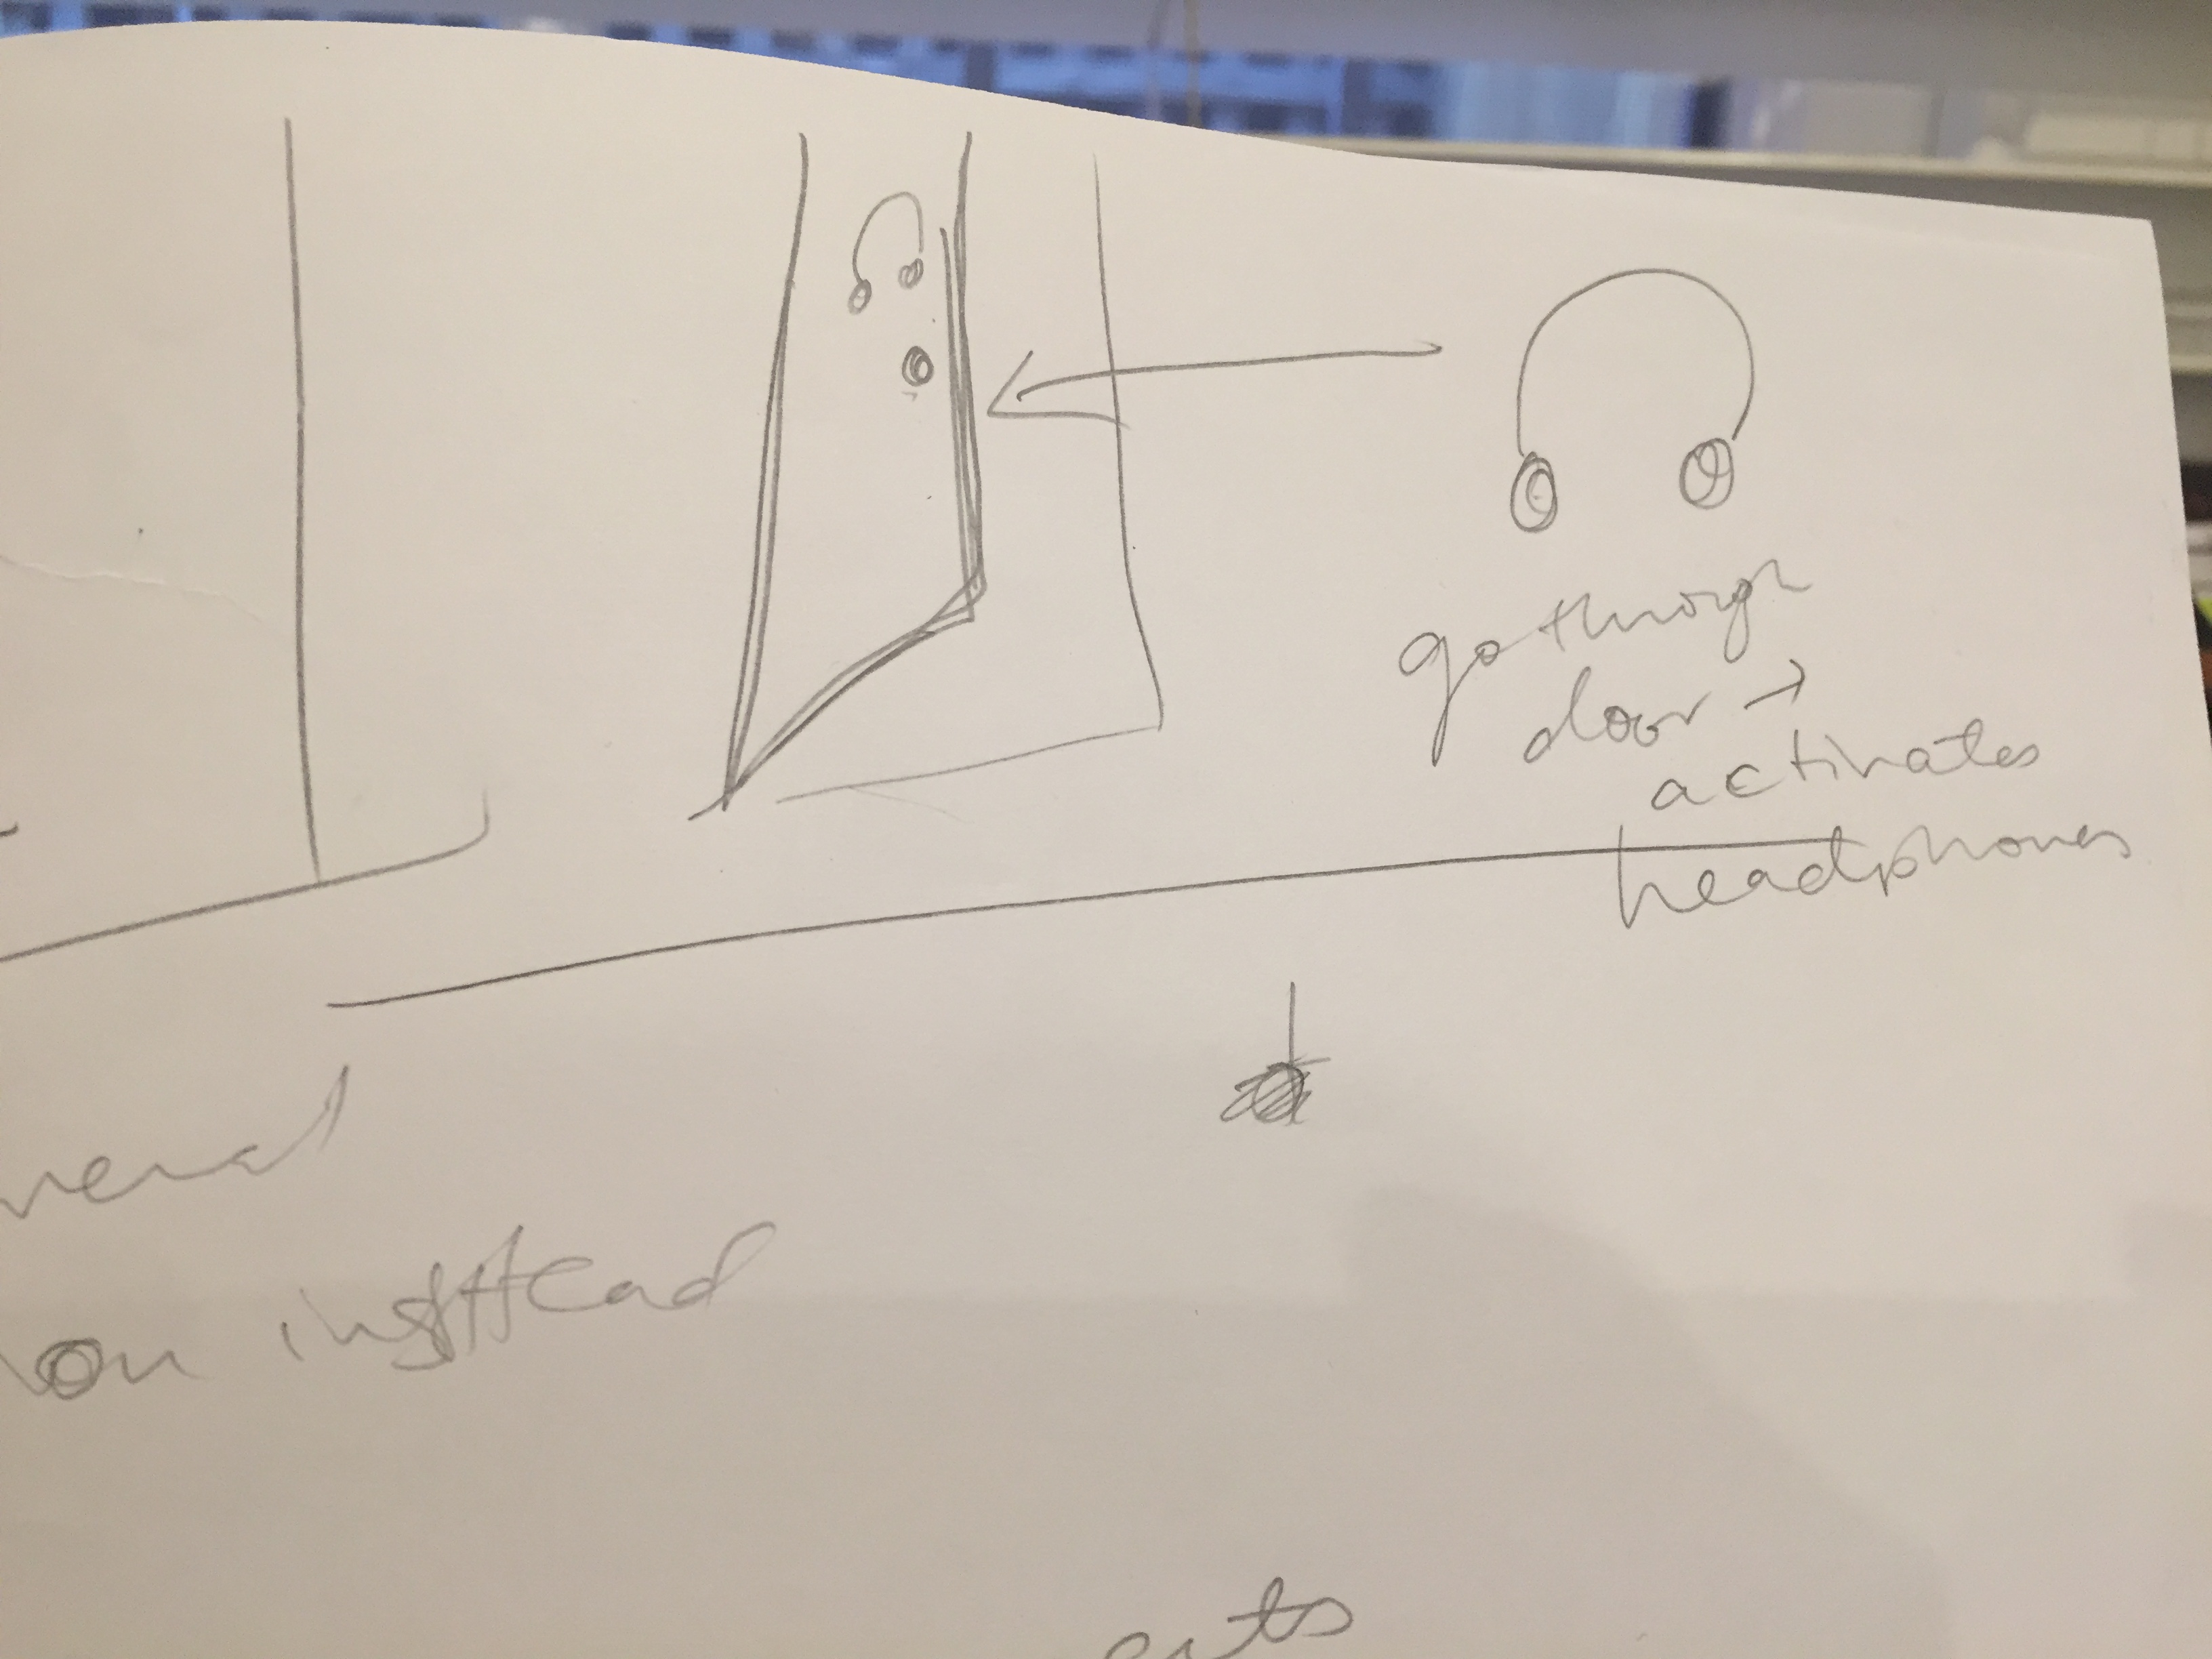 go through
door →
activates
headphones
on instead